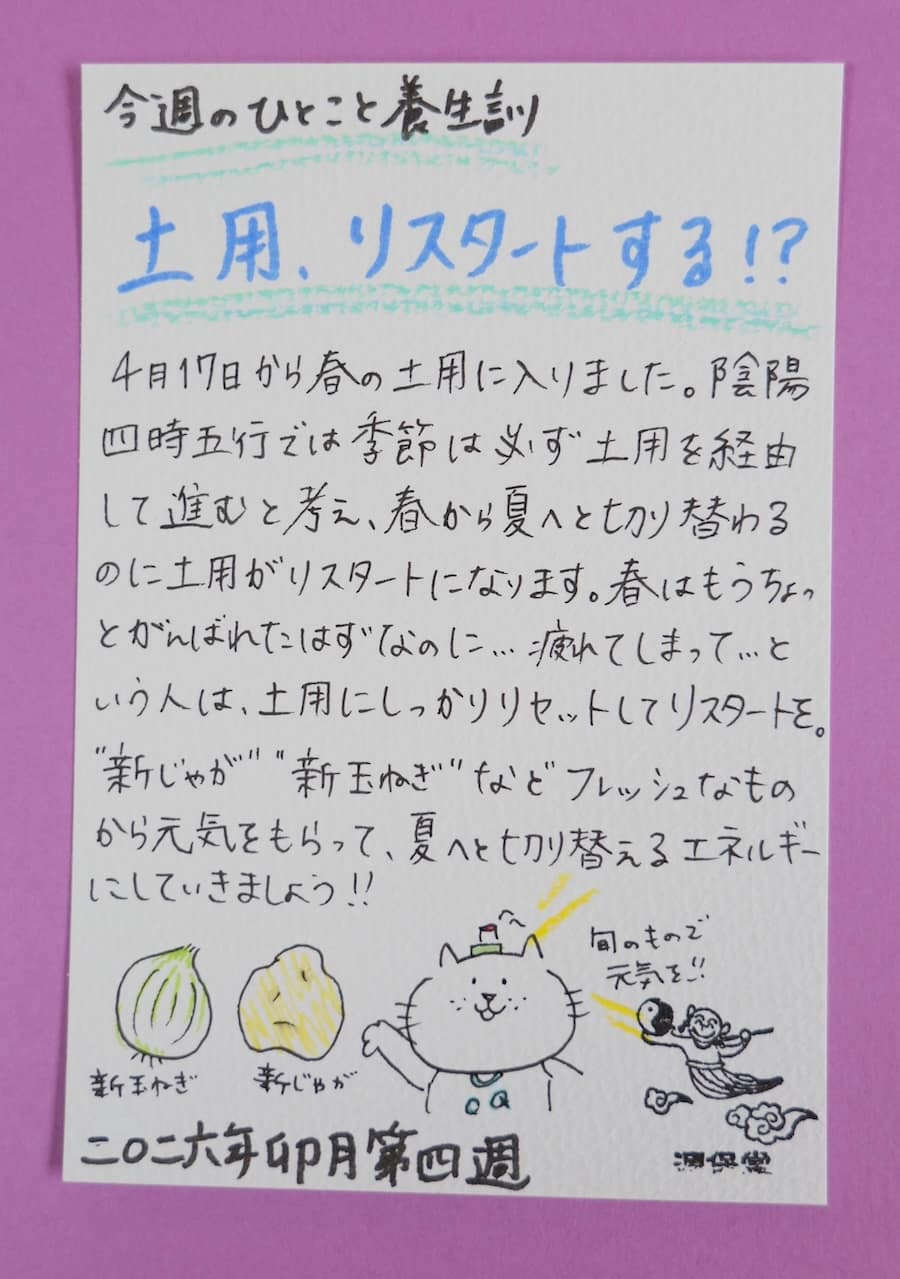 今週のひとこと養生訓
土用、リスタートする!?
4月17日から春の土用に入りました。陰陽
四時五行では季節は必ず土用を経由
して進むと考え、春から夏へと切り替わる
のに土用がリスタートになります。春はもうちょっ
とがんばれたはずなのに…疲れてしまって…と
いう人は、土用にしっかりリセットしてリスタートを。
"新じゃが" "新玉ねぎ"などフレッシュなもの
から元気をもらって、夏へと切り替えるエネルギー
にしていきましょう!!
旬のもので
元気を!!
新玉ねぎ
新じゃが
二〇二六年卯月第四週
源保堂